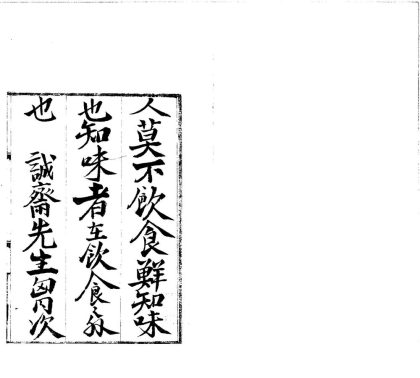 人莫不飲食鮮知味
也知味者在飲食之外
也　誠齋先生胷次